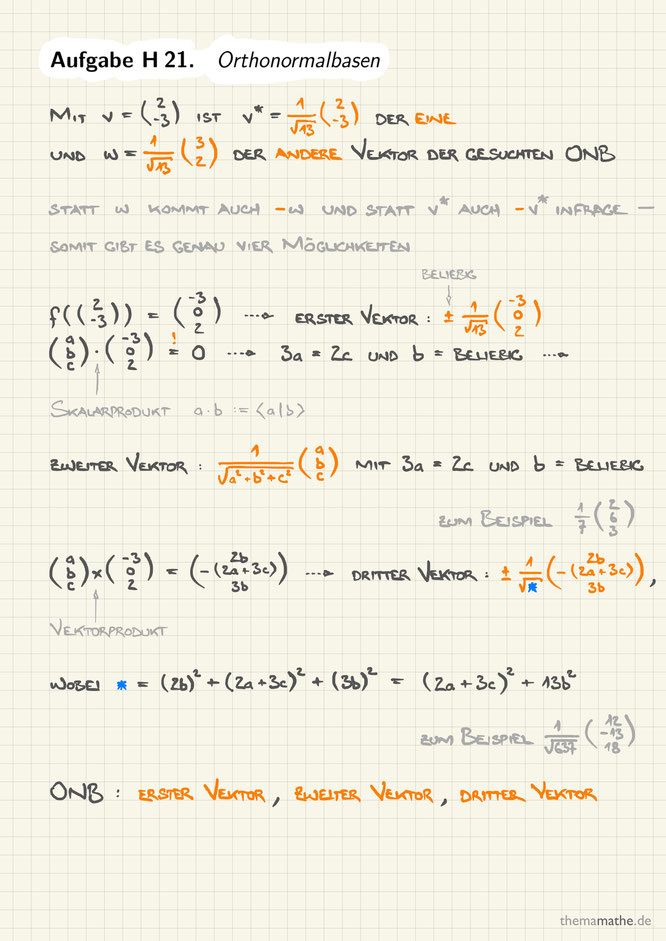 Aufgabe H 21. Orthonormalbasen
MIT v = (2 -3) IST v* = 1/√13 (2 -3) DER EINE
UND w = 1/√13 (3 2) DER ANDERE VEKTOR DER GESUCHTEN ONB
STATT w KOMMT AUCH -w UND STATT v* AUCH -v* INFRAGE —
SOMIT GIBT ES GENAU VIER MÖGLICHKEITEN
BELIEBIG
f((2 -3)) = (-3 0 2) ---> ERSTER VEKTOR : ± 1/√13 (-3 0 2)
(a b c) · (-3 0 2) =! 0 ---> 3a = 2c UND b = BELIEBIG --->
SKALARPRODUKT a·b := ⟨a|b⟩
ZWEITER VEKTOR : 1/√(a²+b²+c²) (a b c) MIT 3a = 2c UND b = BELIEBIG
ZUM BEISPIEL 1/7 (2 6 3)
(a b c) × (-3 0 2) = (2b -(2a+3c) 3b) ---> DRITTER VEKTOR : ± 1/√* (2b -(2a+3c) 3b) ,
VEKTORPRODUKT
WOBEI * = (2b)² + (2a+3c)² + (3b)² = (2a+3c)² + 13b²
ZUM BEISPIEL 1/√637 (12 -13 18)
ONB : ERSTER VEKTOR , ZWEITER VEKTOR , DRITTER VEKTOR
themamathe.de